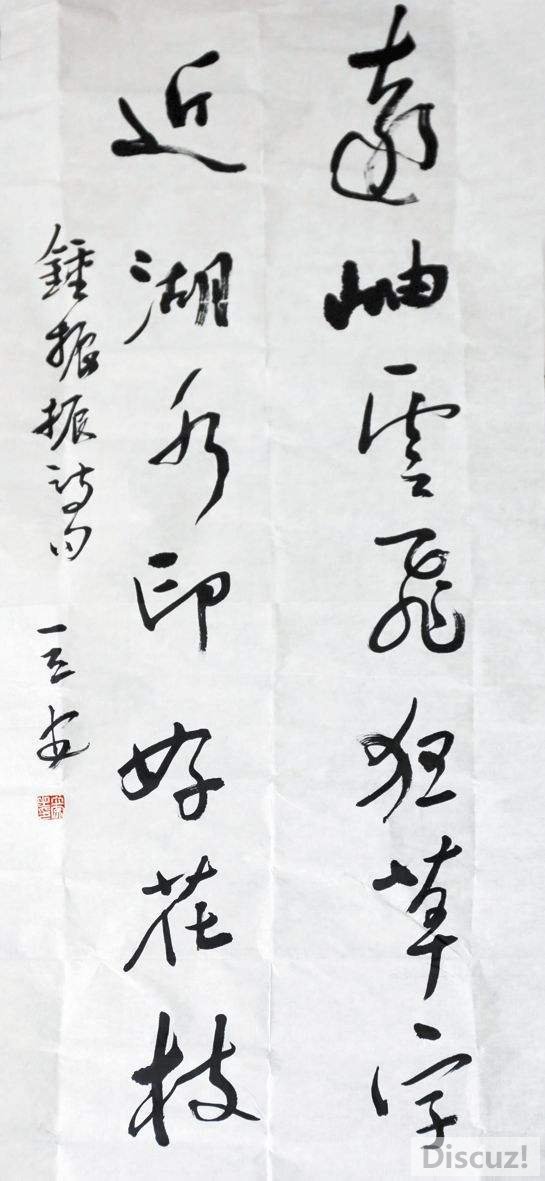 遠岫雲飛狂草字
近湖水印好花枝
鍾振振詩句
Discuz!